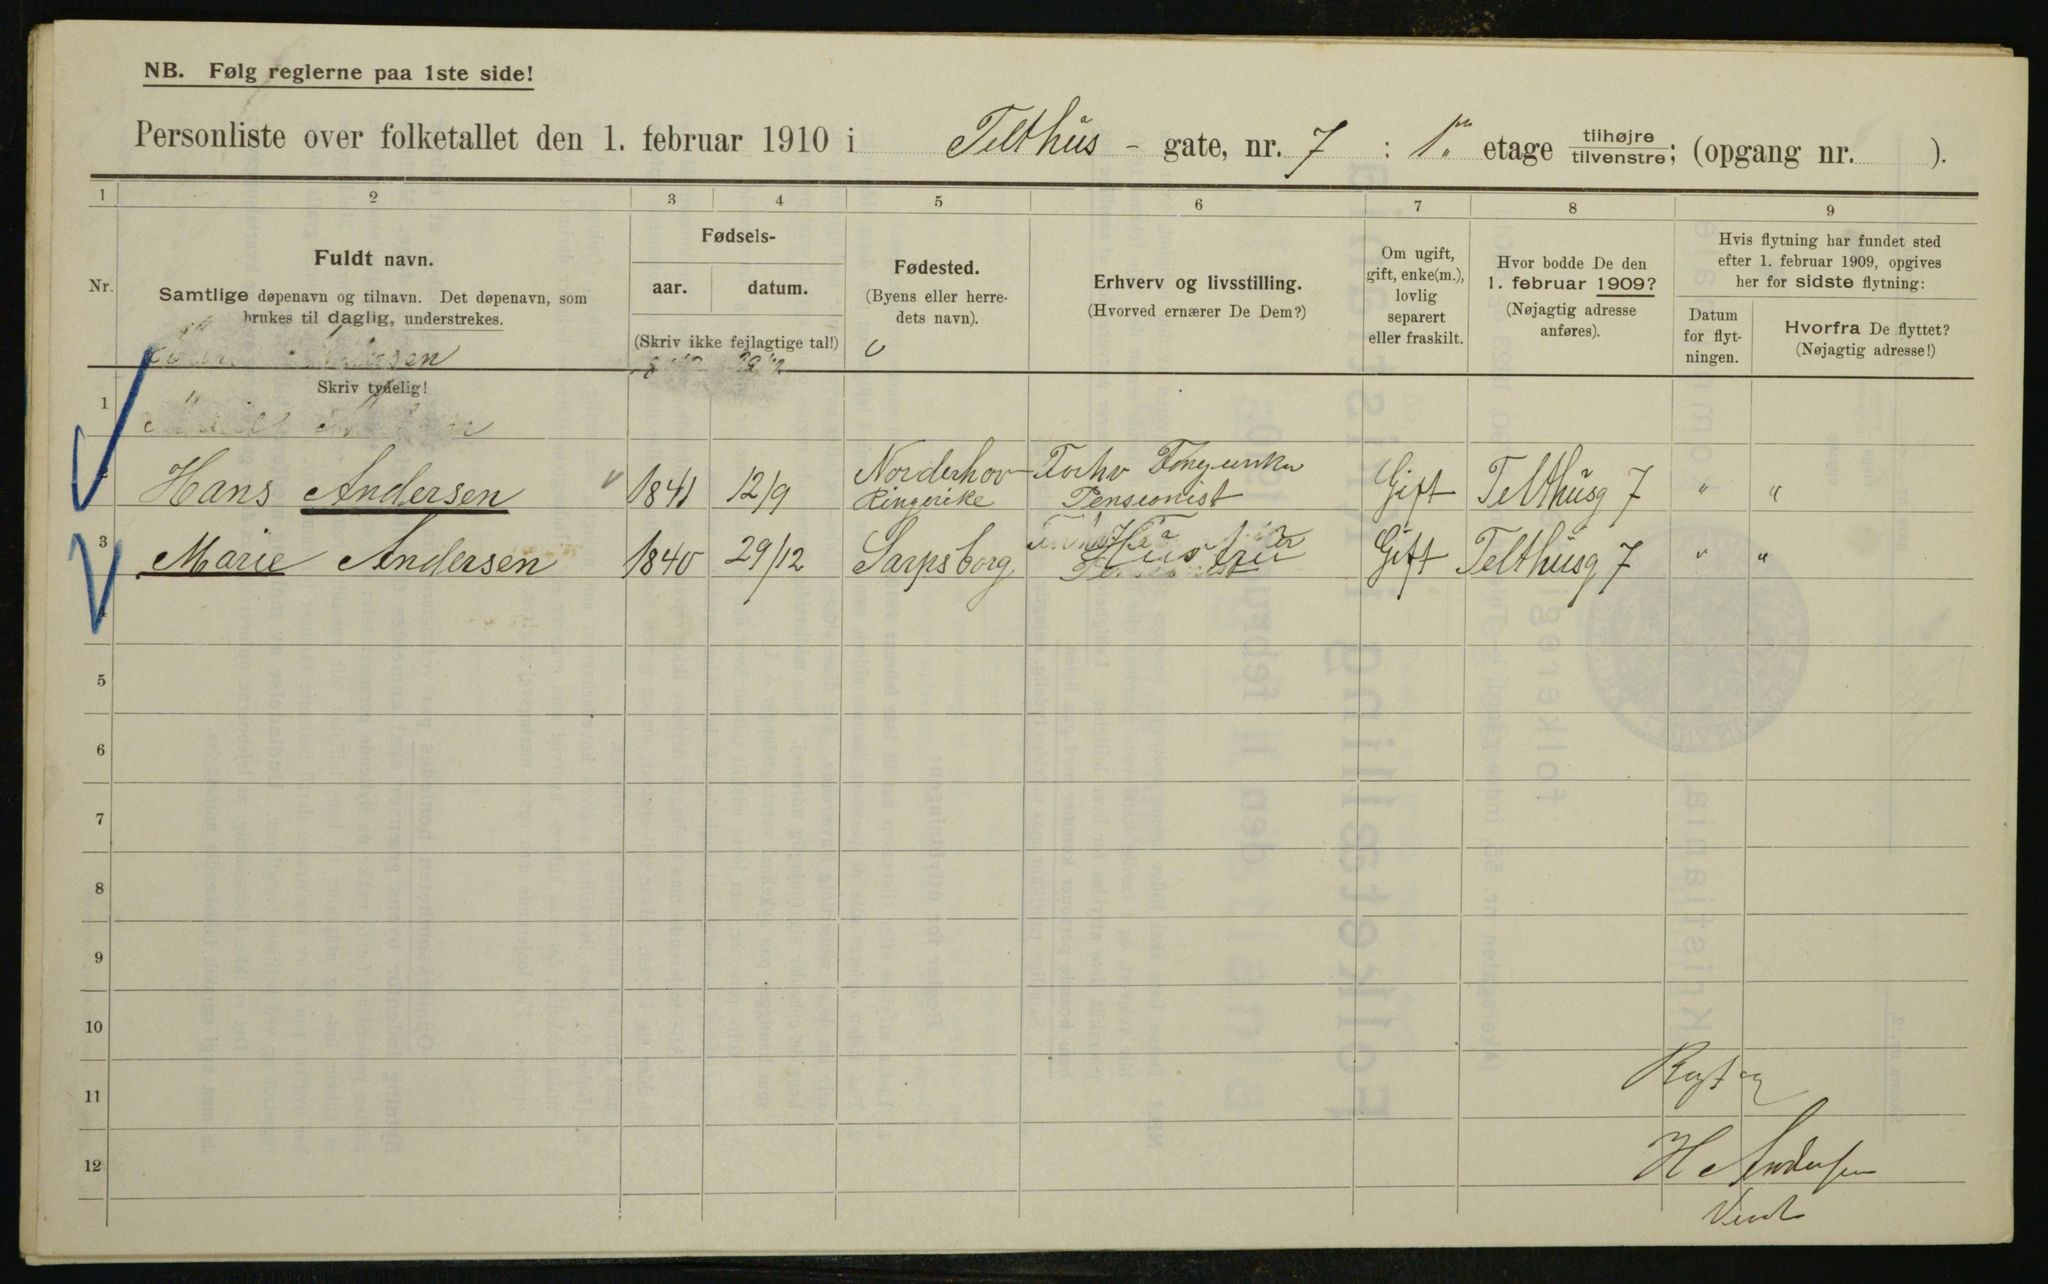 NB. Følg reglerne paa 1ste side!
Personliste over folketallet den 1. februar 1910 i Telthus - gate, nr. 7 : 1. etage tilhøjre tilvenstre; (opgang nr. ).
1 2 3 4 5 6 7 8 9
Nr.
Fuldt navn.
Samtlige døpenavn og tilnavn. Det døpenavn, som
brukes til daglig, understrekes.
Skriv tydelig!
Fødsels-
aar. datum.
(Skriv ikke fejlagtige tal!)
Fødested.
(Byens eller herre-
dets navn).
Erhverv og livsstilling.
(Hvorved ernærer De Dem?)
Om ugift,
gift, enke(m.),
lovlig
separert
eller fraskilt.
Hvor bodde De den
1. februar 1909?
(Nøjagtig adresse
anføres).
Hvis flytning har fundet sted
efter 1. februar 1909, opgives
her for sidste flytning:
Datum
for flyt-
ningen.
Hvorfra De flyttet?
(Nøjagtig adresse!)
1
Hans Andersen 1841 12/9 Norderhov Ringerike Pensionist Gift Telthusg 7 " "
3 Marie Andersen 1840 29/12 Sarpsborg Hustru Gift Telthusg 7 " "
4
5
6
7
8
9
10
11
12
H Andersen